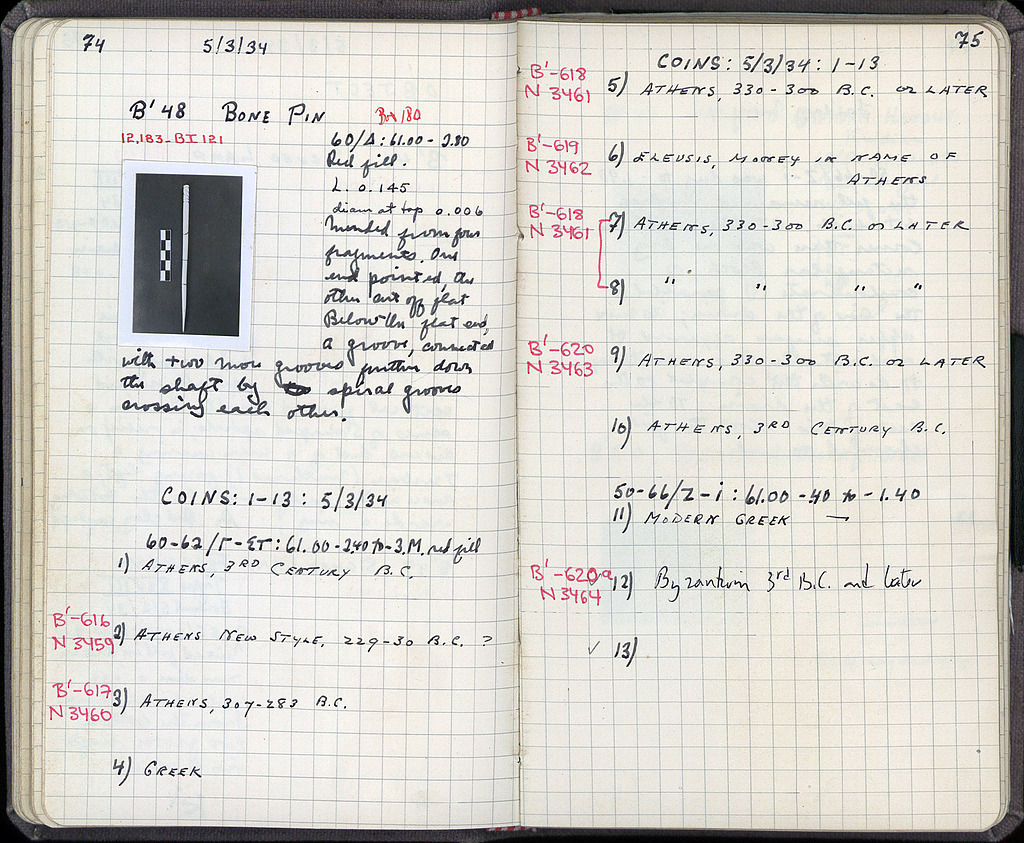 74
5/3/34
B' 48 BONE PIN
Box 180
12,183-BI 121
60/Δ : 61.00 - 2.80
Red fill.
L. 0.145
diam at top 0.006
Mended from four
fragments. One
end pointed, the
other cut off flat
Below the flat end,
a groove, connected
with two more grooves further down
the shaft by spiral grooves
crossing each other.
COINS: 1-13 : 5/3/34
60-62/Γ-ΣΤ : 61.00 - 2.40 to -3.M. red fill
1) ATHENS, 3RD CENTURY B.C.
B'-616
N 3459
2) ATHENS NEW STYLE, 229-30 B.C. ?
B'-617
N 3460
3) ATHENS, 307-283 B.C.
4) GREEK
75
COINS: 5/3/34 : 1-13
B'-618
N 3461
5) ATHENS, 330-300 B.C. OR LATER
B'-619
N 3462
6) ELEUSIS, MONEY IN NAME OF
ATHENS
B'-618
N 3461
7) ATHENS, 330-300 B.C. OR LATER
8) " " " "
B'-620
N 3463
9) ATHENS, 330-300 B.C. OR LATER
10) ATHENS, 3RD CENTURY B.C.
50-66/Z-i : 61.00 -.40 to -1.40
11) MODERN GREEK —
B'-620a
N 3464
12) Byzantium 3rd B.C. and later
✓ 13)